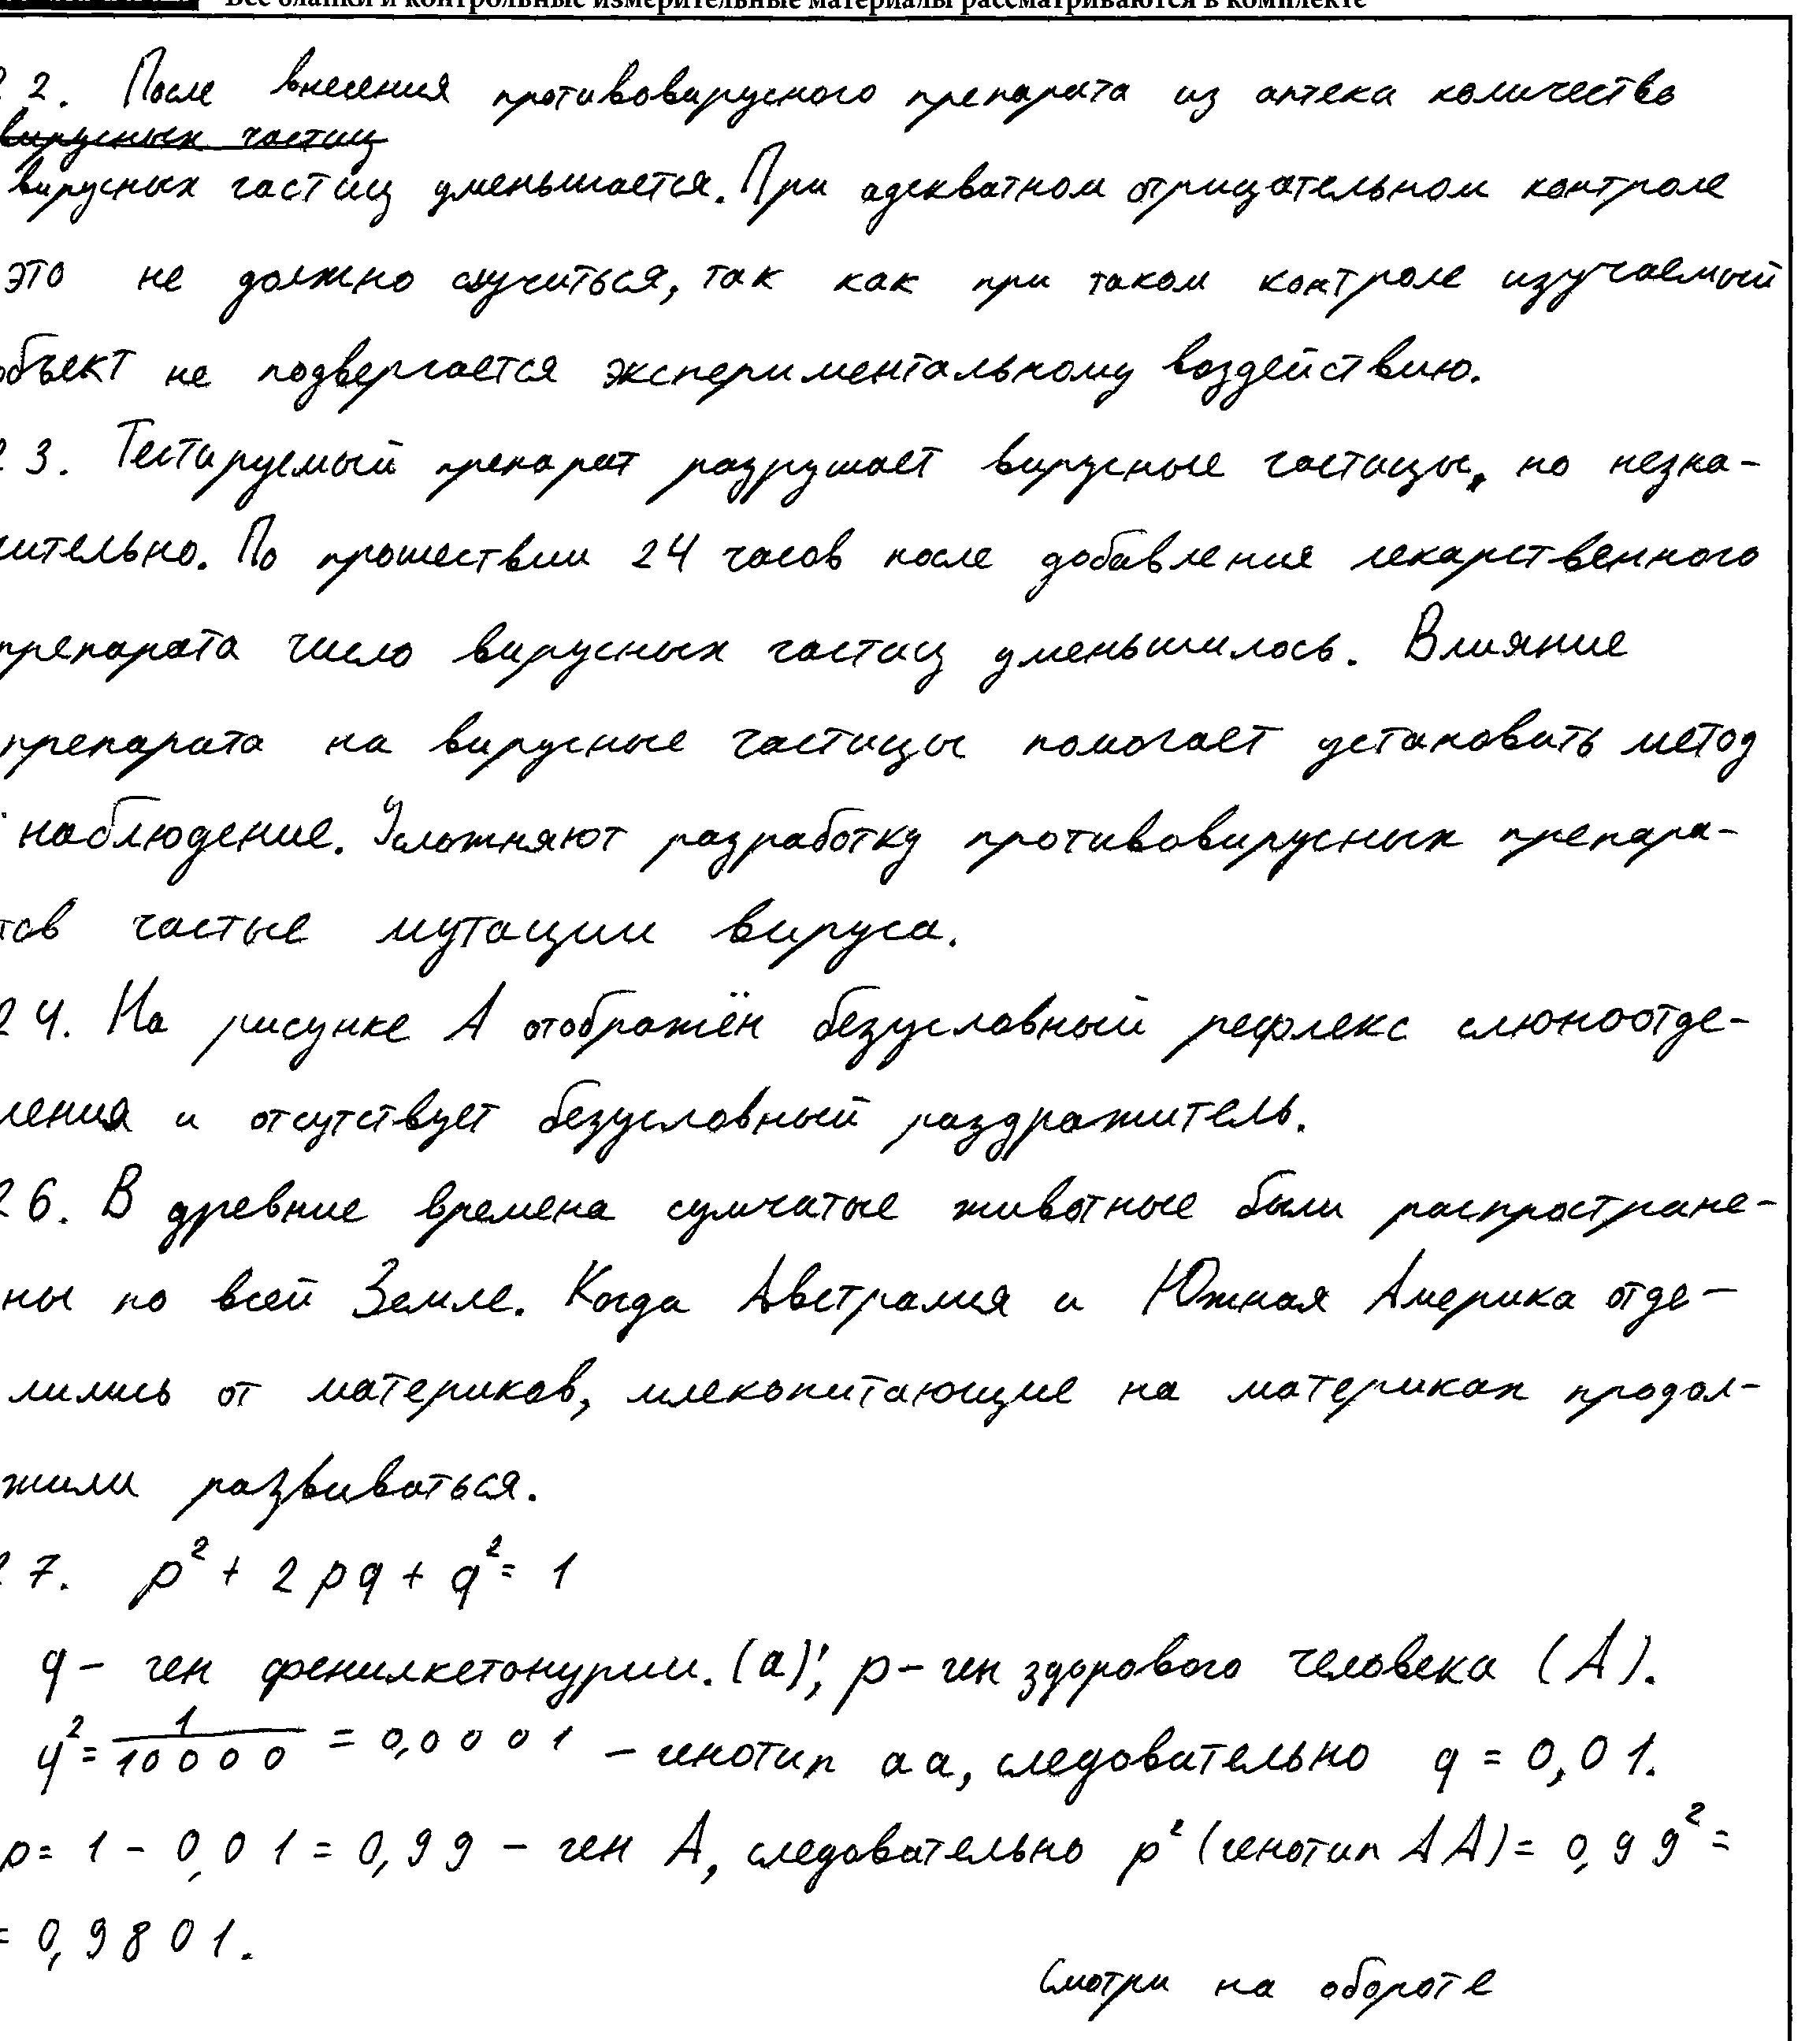 Все бланки и контрольные измерительные материалы рассматриваются в комплекте
22. После внесения противовирусного препарата из аптека количество
вирусных частиц
вирусных частиц уменьшается. При адекватном отрицательном контроле
это не должно случиться, так как при таком контроле изучаемый
объект не подвергается экспериментальному воздействию.
23. Тестируемый препарат разрушает вирусные частицы, но незна-
чительно. По прошествии 24 часов после добавление лекарственного
препарата число вирусных частиц уменьшилось. Влияние
препарата на вирусные частицы помогает установить метод
наблюдение. Усложняют разработку противовирусных препара-
тов частые мутации вируса.
24. На рисунке А отображён безусловный рефлекс слюноотде-
ления и отсутствует безусловный раздражитель.
26. В древние времена сумчатые животные были распростране-
ны по всей Земле. Когда Австралия и Южная Америка отде-
лились от материков, млекопитающие на материках продол-
жили развиваться.
27. p² + 2pq + q² = 1
q – ген фенилкетонурии. (а); p – ген здорового человека (А).
q² = 1/10000 = 0,0001 – генотип аа, следовательно q = 0,01.
p = 1 - 0,01 = 0,99 – ген А, следовательно p² (генотип АА) = 0,99² =
= 0,9801.
Смотри на обороте